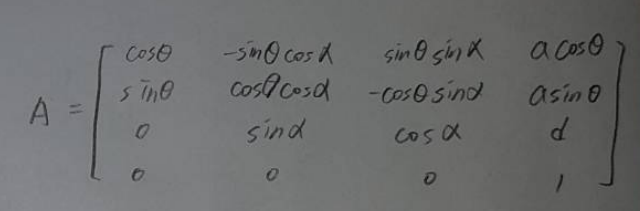 cosθ -sinθcosα sinθsinα acosθ
sinθ cosθcosα -cosθsinα asinθ
A =
0 sinα cosα d
0 0 0 1